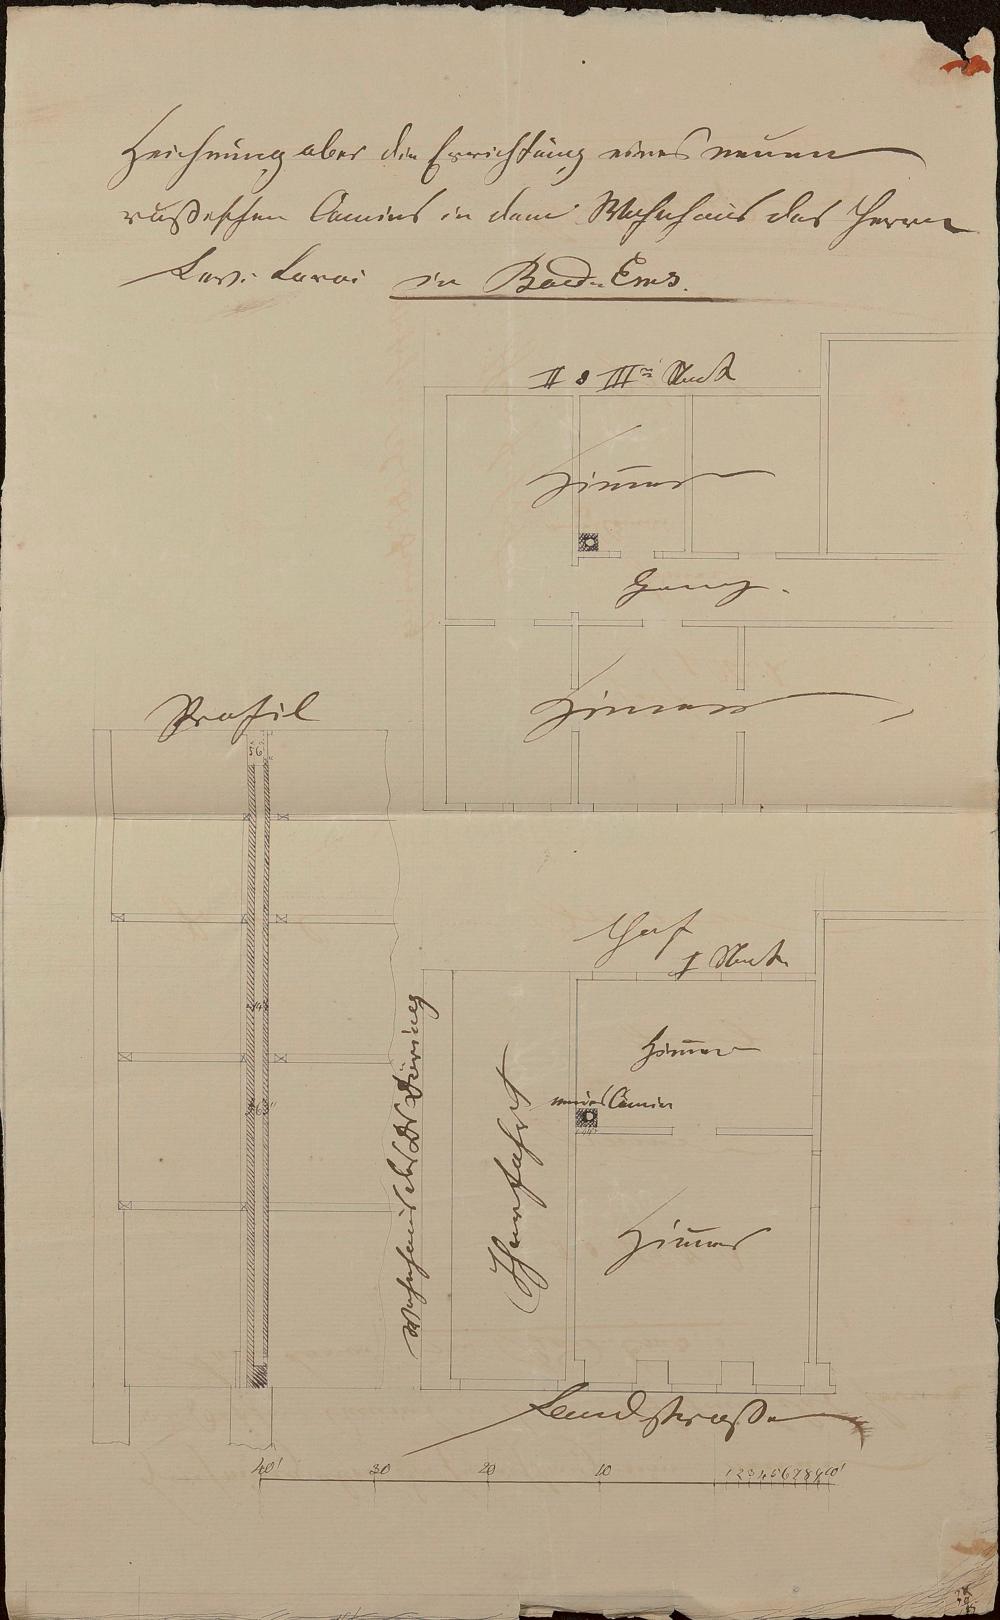 Zeichnung über die Errichtung eines neuen
rußischen Camins in dem Wohnhaus des Herrn
in Bad-Ems.
II & III Stock
Zimmer
Gang.
Zimmer
Profil
Hof
I Stock
Zimmer
neues Camin
Zimmer
Thorfahrt
Wohnhaus des Dr Döring
Landstrasse
40' 30 20 10 1 2 3 4 5 6 7 8 9 10'